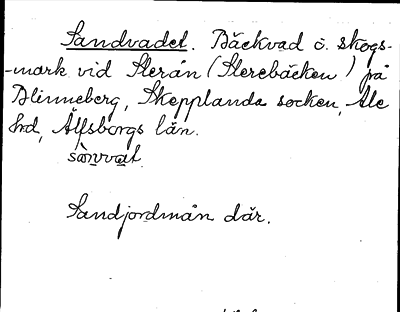 Sandvadet. Bäckvad o. skogs-
-mark vid Sterån (Sterebäcken) på
Blinneberg, Skepplanda socken, Ale
hd, Älfsborgs län.
Sandjordmån där.